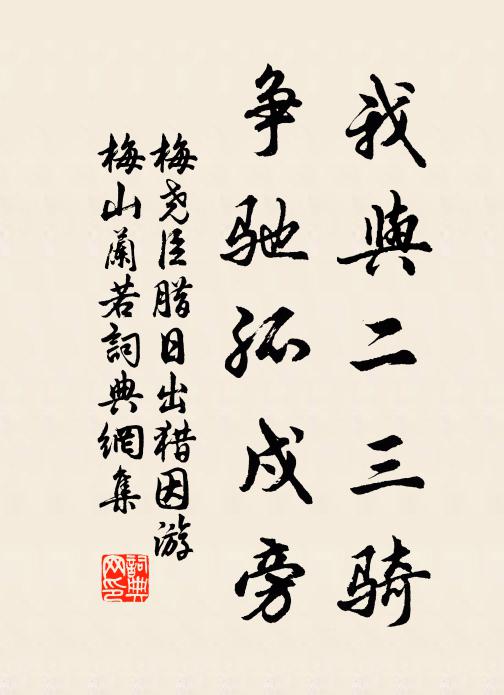 我與二三騎
争馳孤戍旁
梅堯臣腊日出猎因游
梅山蘭若詞典網集
詞典
网印